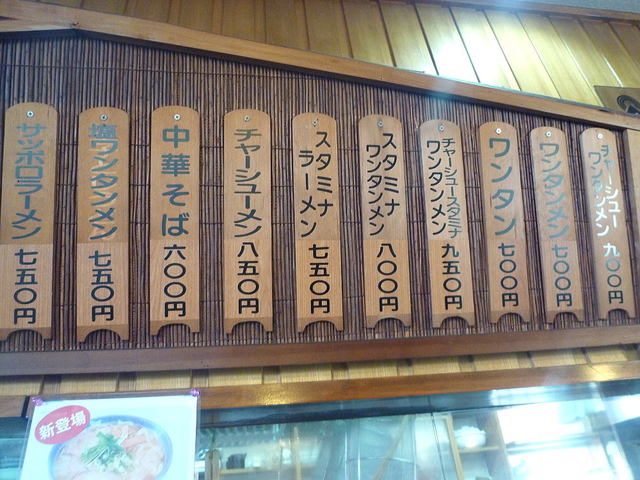 チャーシュー
ワンタンメン
九〇〇円
ワンタンメン 七〇〇円
ワンタン 七〇〇円
チャーシュースタミナ
ワンタンメン
九五〇円
スタミナ
ワンタンメン
八〇〇円
スタミナ
ラーメン
七五〇円
チャーシューメン 八五〇円
中華そば 六〇〇円
塩ワンタンメン 七五〇円
サッポロラーメン 七五〇円
新登場